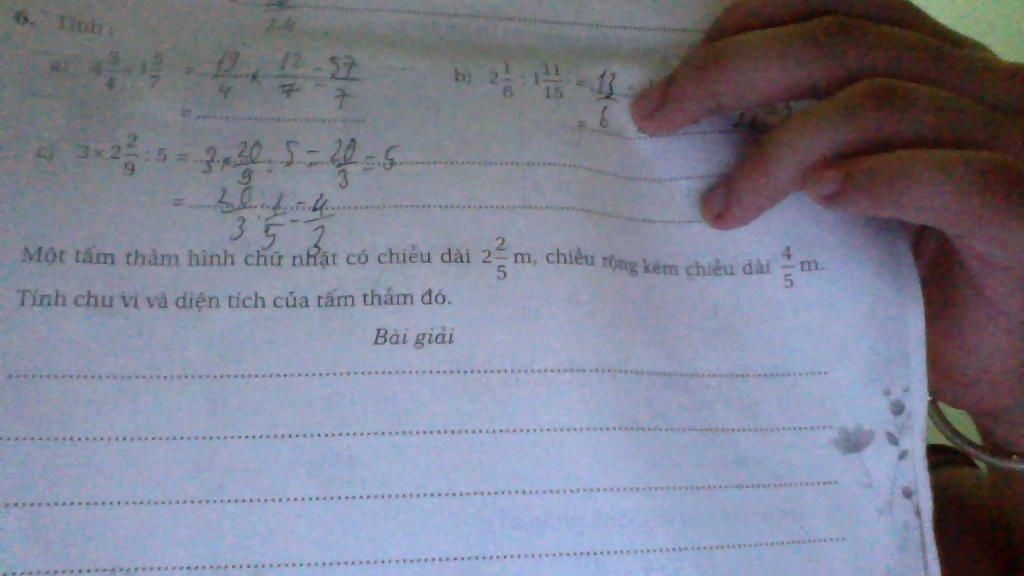 24
6. Tính :
a) 4 3/4 × 1 5/7 = 19/4 × 12/7 = 57/7 b) 2 1/6 : 1 11/15 = 13/6
= =
c) 3 × 2 2/9 : 5 = 3 × 20/9 : 5 = 20/3 = 5
= 20/3 . 1/5 = 4/3
Một tấm thảm hình chữ nhật có chiều dài 2 2/5 m, chiều rộng kém chiều dài 4/5 m.
Tính chu vi và diện tích của tấm thảm đó.
Bài giải